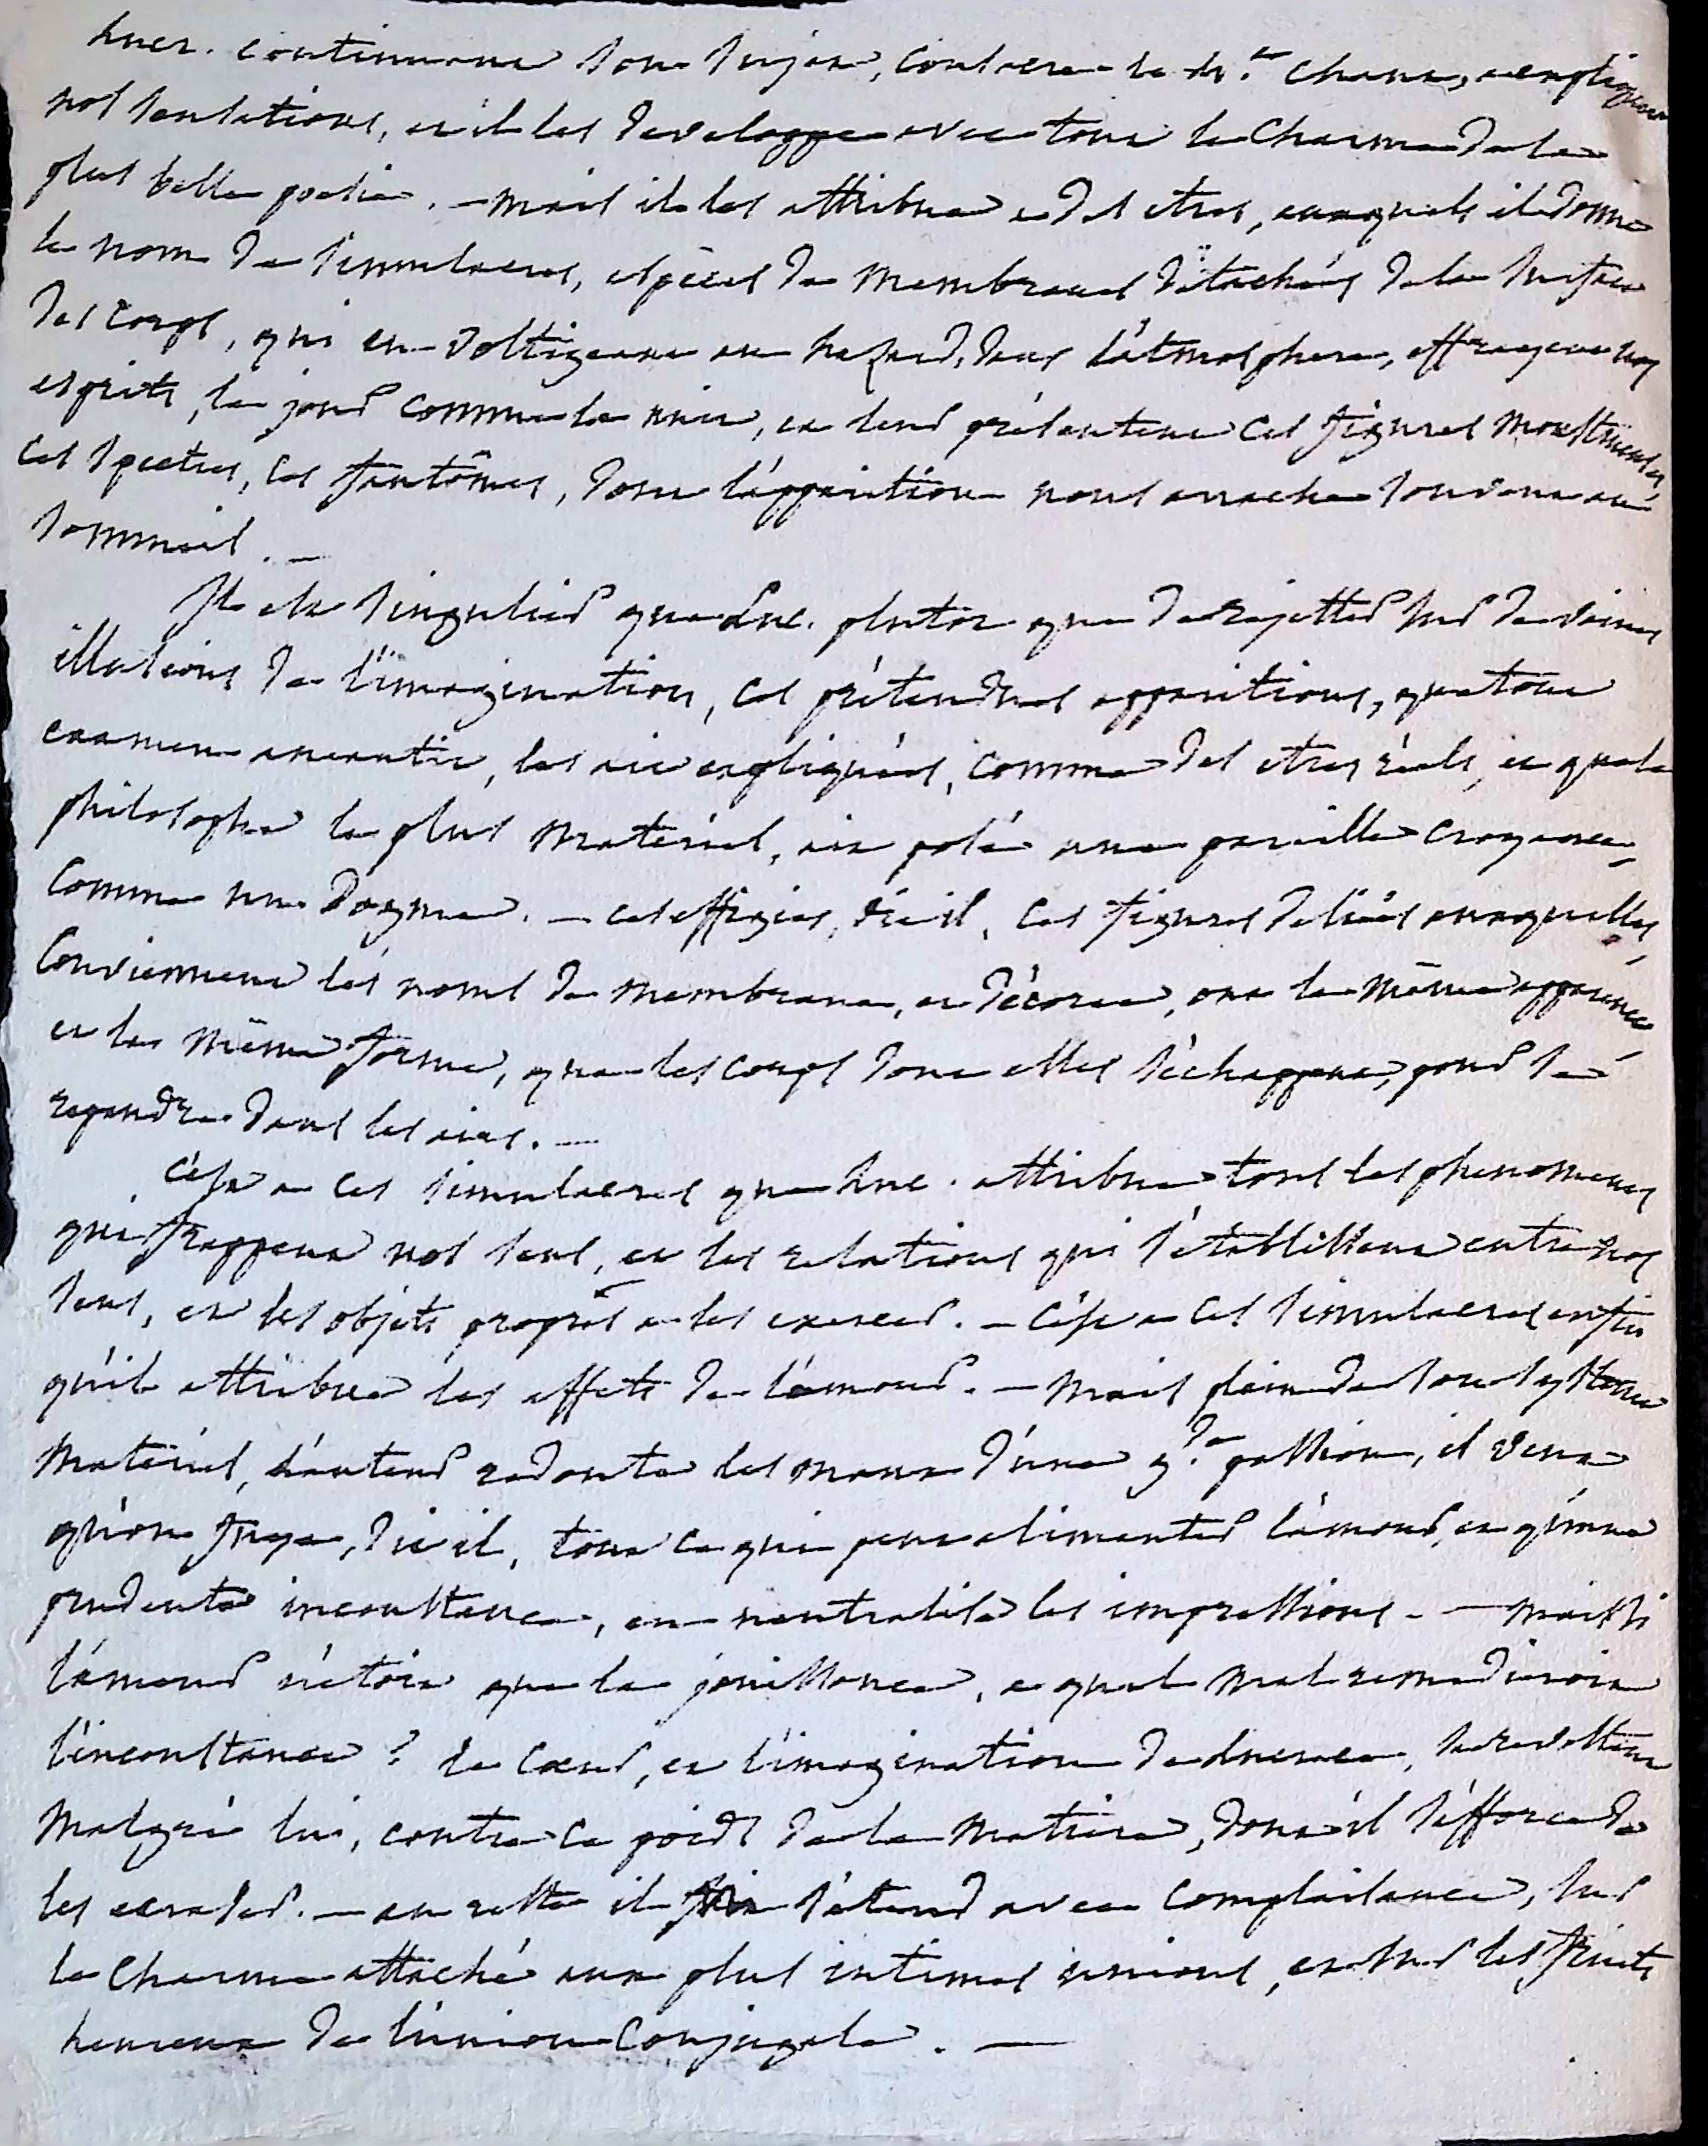 Luc. continuant son sujet, consacre le 4.e chant, a expliquer
nos sensations, et il les developpe avec tout le charme de la
plus belle poesie. – mais il les attribue a des etres, auxquels il donne
le nom de simulacres, especes de membranes détachées de la surface
des corps, qui en voltigeant au hazard, dans l'atmosphere, effrayent nos
esprits, le jour comme la nuit, et leur présentent ces figures monstrueuses,
ces spectres, ces fantômes, dont l'apparition nous arrache souvent au
sommeil. –
Il est singulier que Luc. plutot que de rejetter sur de vaines
illusions de l'imagination, ces prétendues apparitions, que tout
examen aneantit, les ait expliquées, comme des etres réels, et que le
philosophe le plus matériel, ait posé une pareille croyance,
comme un dogme. – ces effigies, dit il, ces figures deliées auxquelles,
conviennent les noms de membrane, et d'écorce, ont la même apparence,
et la même forme, que les corps dont elles s'échappent, pour se
repandre dans les airs. –
C'est a ces simulacres que Luc. attribue tous les phenomenes
qui frappent nos sens, et les relations qui s'etablissent entre nos
sens, et les objets propres a les exercer. – C'est a ces simulacres enfin
qu'il attribue les effets de l'amour. – Mais plein de son systeme
matériel, l'auteur redoute les maux d'une g.de passion, il veut
qu'on fuye, dit il, tout ce qui peut alimenter l'amour, et qu'une
prudente inconstance, en neutralise les impressions. – mais si
l'amour n'étoit que la jouissance, a quel mal remedieroit
l'inconstance ? le coeur, et l'imagination de Lucrece, se revoltent
malgré lui, contre ce poids de la matiere, dont il s'éfforce de
les ecraser. – au reste il s'étend avec complaisance, sur
le charme attaché aux plus intimes unions, et sur les fruits
heureux de l'union conjugale. –